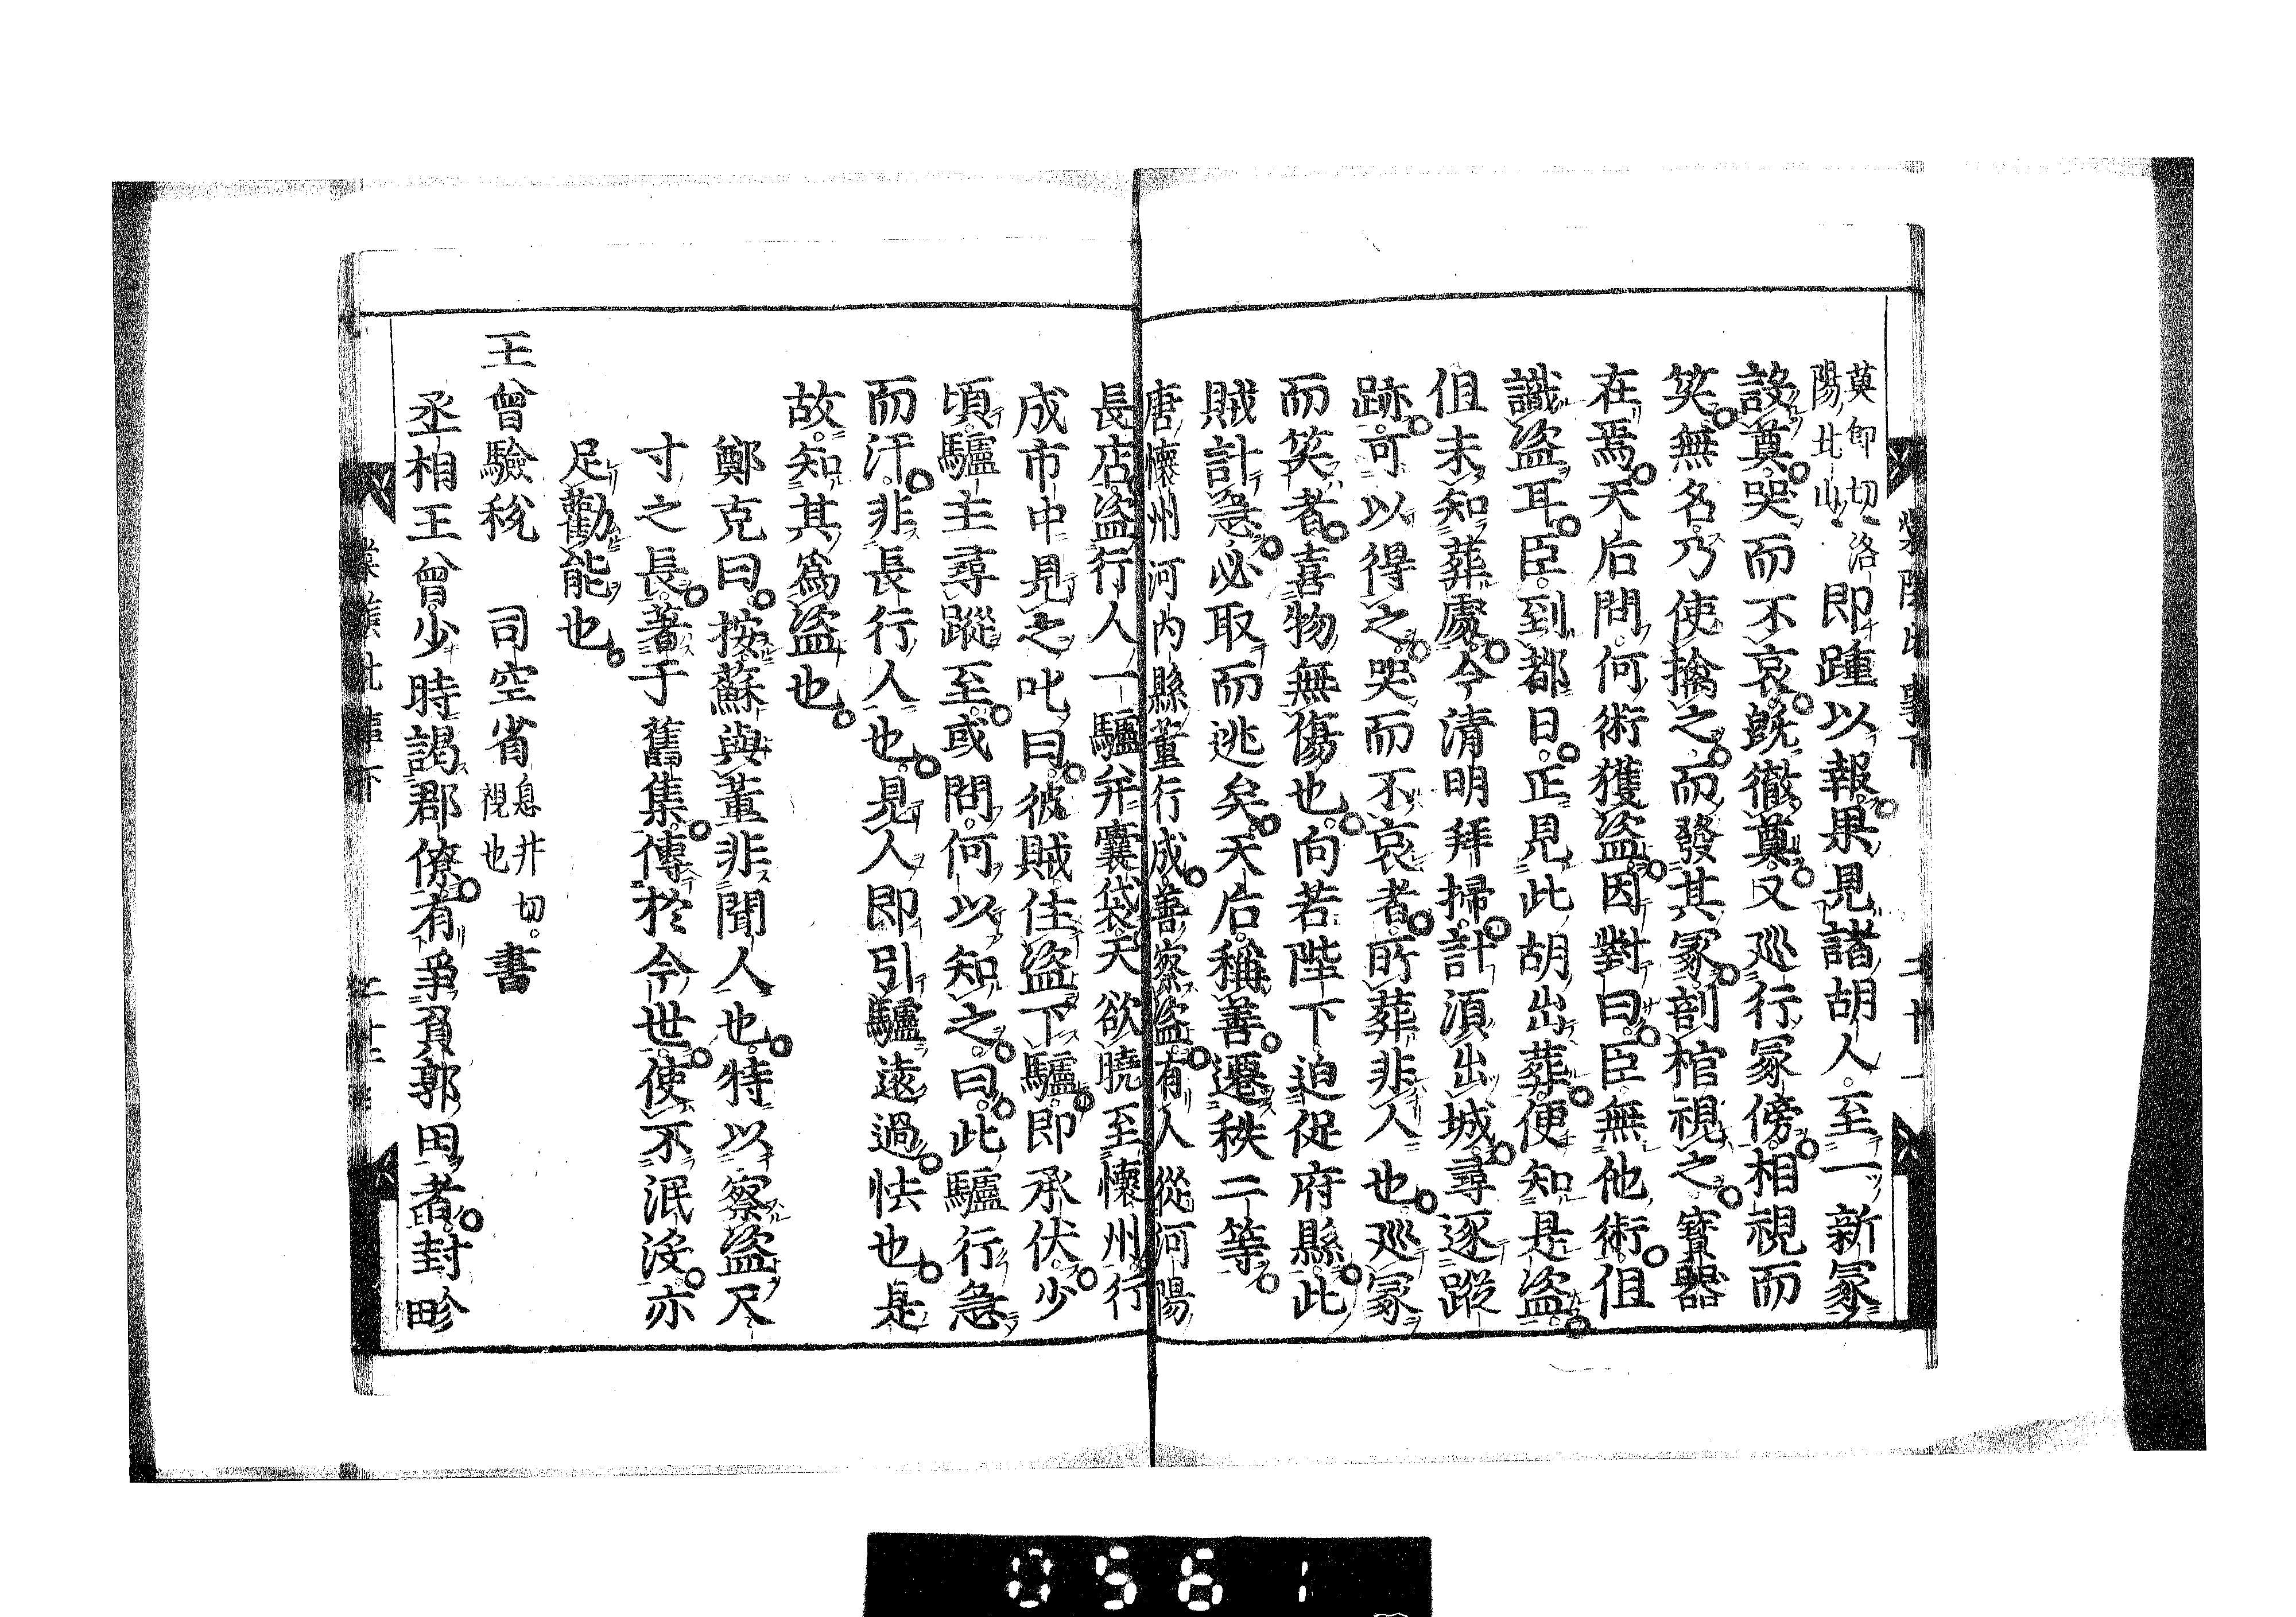 莫郎切洛
陽北山
即踵以報果見諸胡人至一新冢
設奠哭而不哀旣徹奠又巡行冢傍相視而
笑無名乃使擒之而發其冢剖棺視之寶器
在焉天后問何術獲盜因對曰臣無他術但
識盜耳臣到都日正見此胡出葬便知是盜
但未知葬處今清明拜掃計須出城尋逐蹤
跡可以得之哭而不哀者所葬非人也巡冢
而笑者喜物無傷也向若陛下迫促府縣此
賊計急必取而逃矣天后稱善遷秩二等
唐懷州河内縣董行成善察盜有人從河陽
長店盜行人一驢并囊袋天欲曉至懷州行
成市中見之叱曰彼賊住盜下驢即承伏少
頃驢主尋蹤至或問何以知之曰此驢行急
而汗非長行人也見人即引驢遠過怯也是
故知其爲盜也
鄭克曰按蘇與董非聞人也特以察盜尺
寸之長著于舊集傳於今世使不泯没亦
足勸能也
王曾驗稅　司空省
息井切
視也
書
丞相王曾少時謁郡僚有爭負郭田者封畛
0561